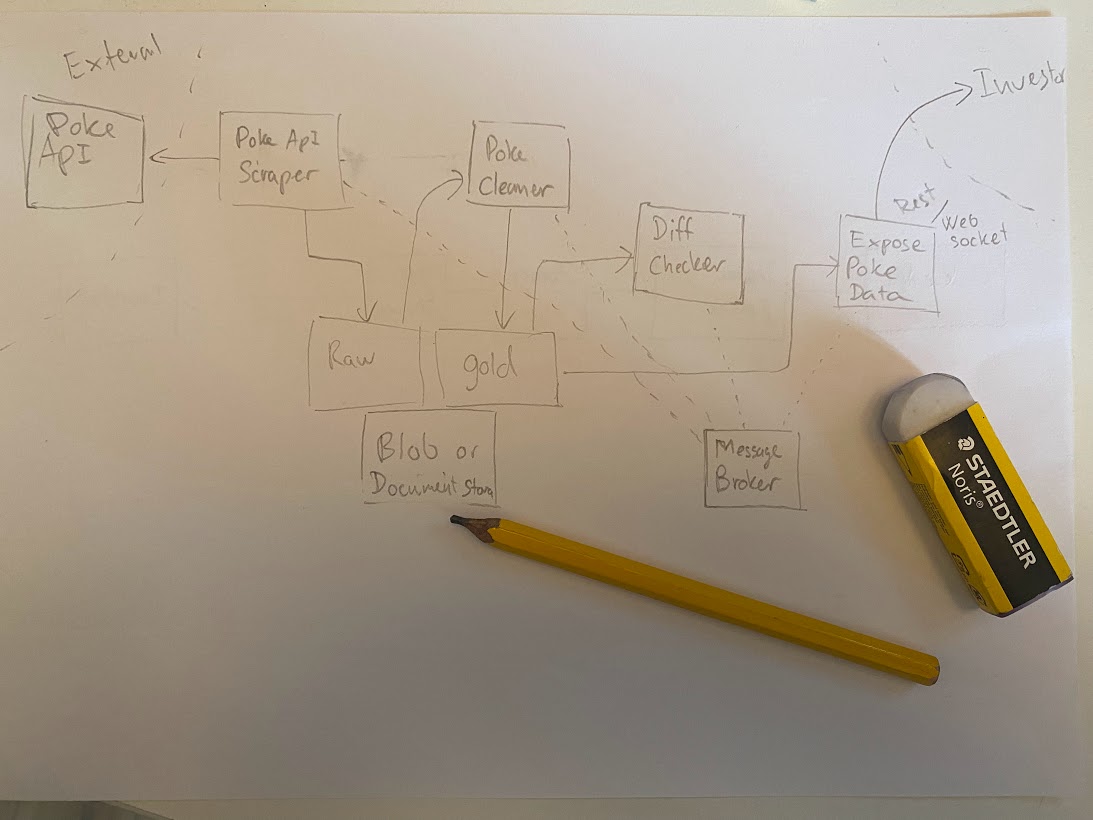 External
Poke
API
Poke ApI
Scraper
Poke
Cleaner
Diff
Checker
Investor
Rest /
Web
socket
Expose
Poke
Data
Raw
gold
Blob or
Document Store
Message
Broker
STAEDTLER
Noris®